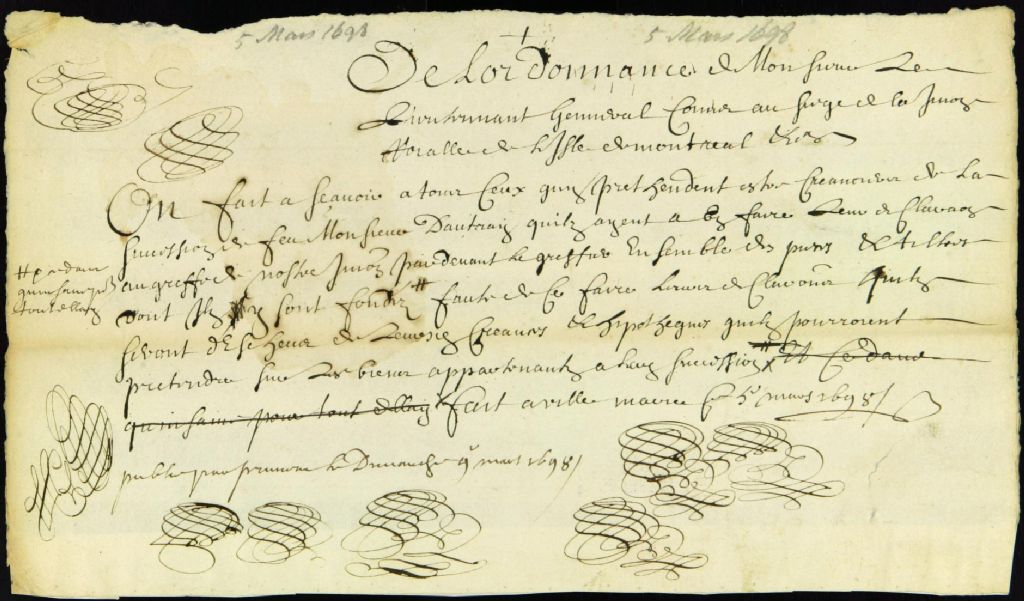 5 Mars 1698 5 Mars 1698
De Lordonnance de Monsieur Le
Lieutennant Genneral Comis au siege de la Juris
de lisle de montreal
On fait a sçavoir a tous Ceux quy prethendent estre Creanciers de La
succession de feu Monsieur Dautray quilz ayent a faire Leur de Claraon
au greffe de nostre Juron pardevant Le greffier Ensemble des pieces et tiltres
dont Ilz sont fondez # faulte de Ce faire Leurs de Claraons quilz
seront descheus de Leurs Creances et hipotheques quilz pourroient
pretendre sur Les biens appartenants a lad succession # Et Ce dans
quinsaine pour tout dellay fait a ville marie Ce 5 mars 1698
# et Ce dans
quinsaine pour
tout dellay
publié par premiere le Dimanche 9 mars 1698